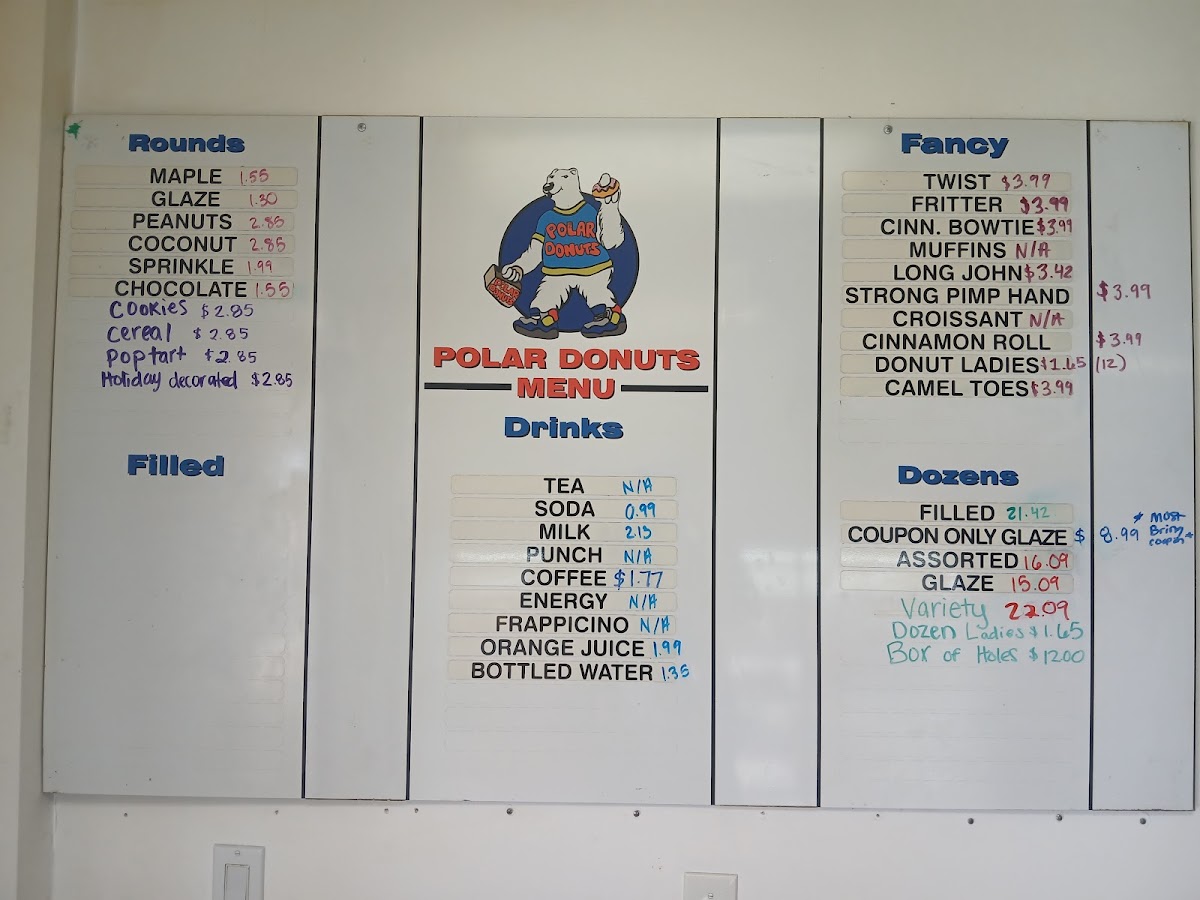 Rounds
MAPLE 1.55
GLAZE 1.30
PEANUTS 2.85
COCONUT 2.85
SPRINKLE 1.99
CHOCOLATE 1.55
Cookies $2.85
cereal $2.85
poptart $2.85
Holiday decorated $2.85
Filled
POLAR
DONUTS
POLAR DONUTS
MENU
Drinks
TEA N/A
SODA 0.99
MILK 2.15
PUNCH N/A
COFFEE $1.77
ENERGY N/A
FRAPPICINO N/A
ORANGE JUICE 1.99
BOTTLED WATER 1.35
Fancy
TWIST $3.99
FRITTER $3.99
CINN. BOWTIE $3.99
MUFFINS N/A
LONG JOHN $3.42
STRONG PIMP HAND $3.99
CROISSANT N/A
CINNAMON ROLL $3.99
DONUT LADIES $1.65 (12)
CAMEL TOES $3.99
Dozens
FILLED 21.42
COUPON ONLY GLAZE $ 8.99
* Most
Bring
coupon *
ASSORTED 16.09
GLAZE 15.09
Variety 22.09
Dozen Ladies $1.65
Box of Holes $1200